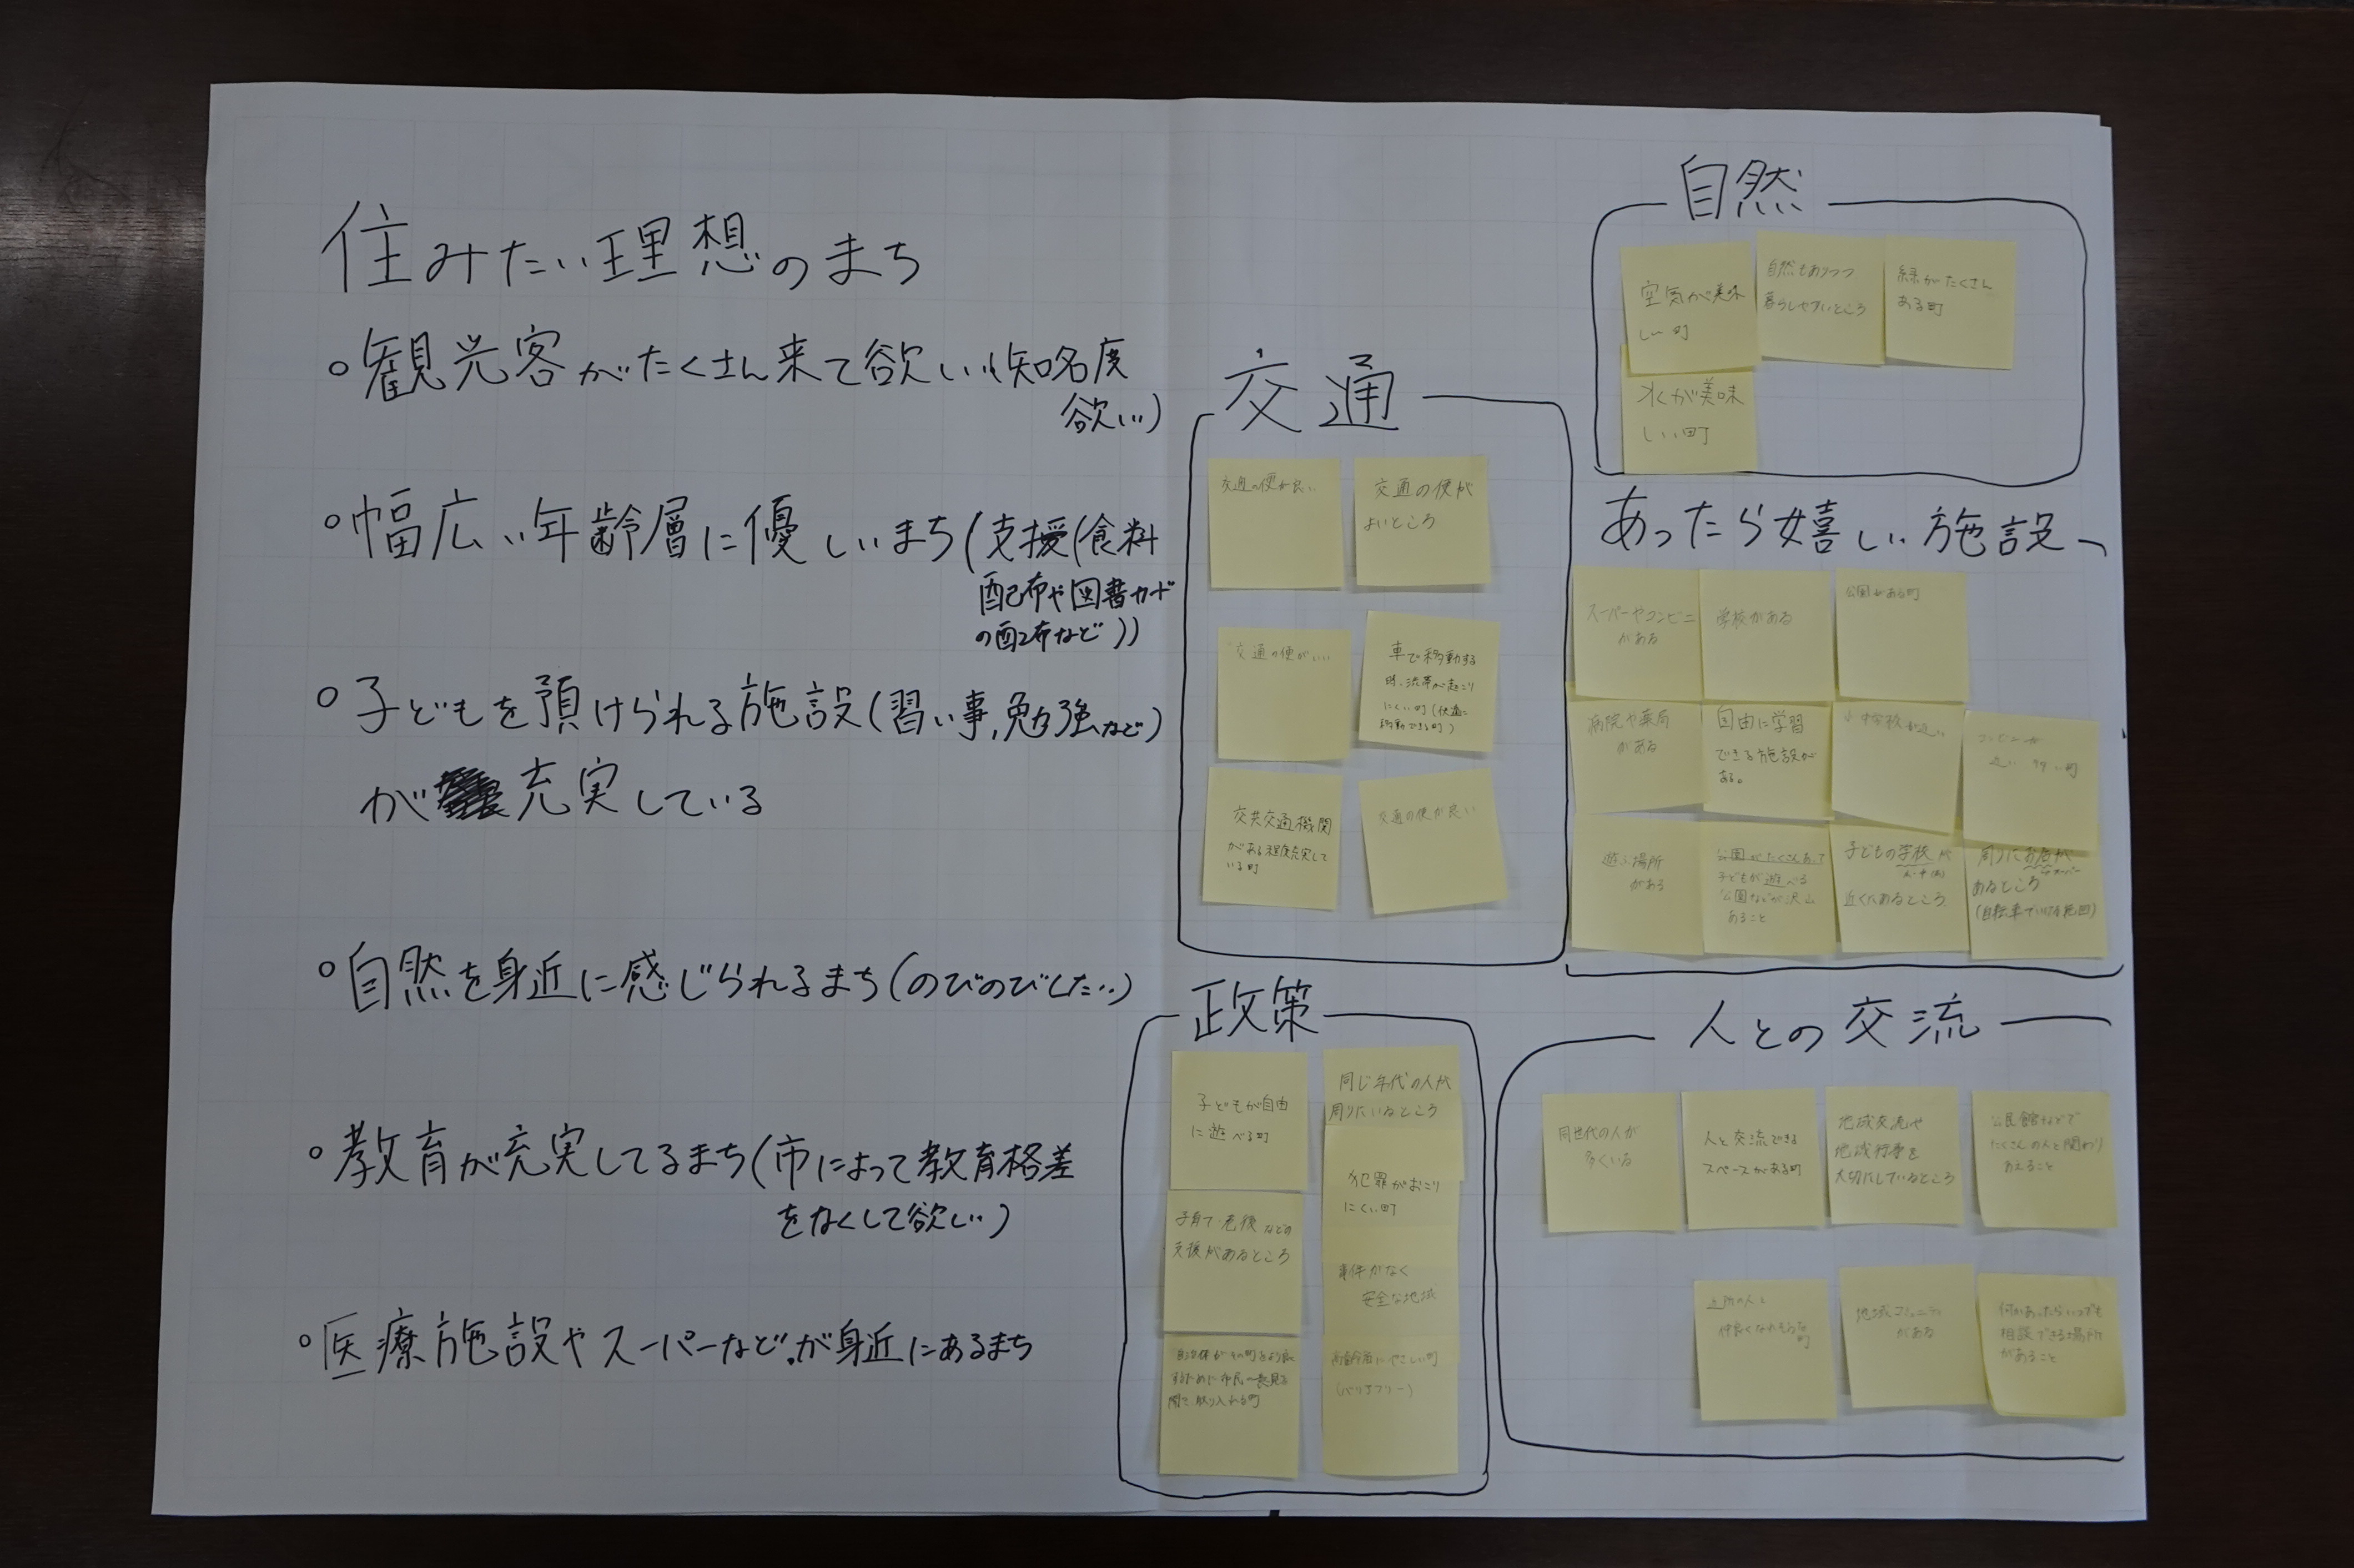 住みたい理想のまち
。観光客がたくさん来て欲しい(知名度
欲しい)
。幅広い年齢層に優しいまち(支援(食料
配布や図書カード
の配布など))
。子どもを預けられる施設(習い事,勉強など)
が充実している
。自然を身近に感じられるまち(のびのびしたい)
。教育が充実してるまち(市によって教育格差
をなくして欲しい)
。医療施設やスーパーなどが身近にあるまち
交通
交通の便が良い
交通の便が
よいところ
交通の便がいい
車で移動する
時、渋滞が起こり
にくい町(快適に
移動できる町)
交共交通機関
がある程度充実して
いる町
交通の便が良い
自然
空気が美味
しい町
自然もありつつ
暮らしやすいところ
緑がたくさん
ある町
水が美味
しい町
あったら嬉しい施設
スーパーやコンビニ
がある
学校がある
公園がある町
病院や薬局
がある
自由に学習
できる施設が
ある。
小中学校が近い
遊ぶ場所
がある
公園がたくさんあって
子どもが遊べる
公園などが沢山
あること
子どもの学校が
近くにあるところ
周りにお店が
スーパー
あるところ
(自転車でいける範囲)
政策
子どもが自由
に遊べる町
子育て 老後などの
支援があるところ
自治体がその町をより良く
するために市民の意見を
聞て取り入れる町
同じ年代の人が
周りにいるところ
犯罪がおこり
にくい町
事件がなく
安全な地域
高齢者にやさしい町
(バリアフリー)
人との交流
同世代の人が
多くいる
人と交流できる
スペースがある町
地域交流や
地域行事を
大切にしているところ
公民館などで
たくさんの人と関わり
あえること
近所の人と
仲良くなれそうな
町
地域コミュニティ
がある
何かあったらいつでも
相談できる場所
があること